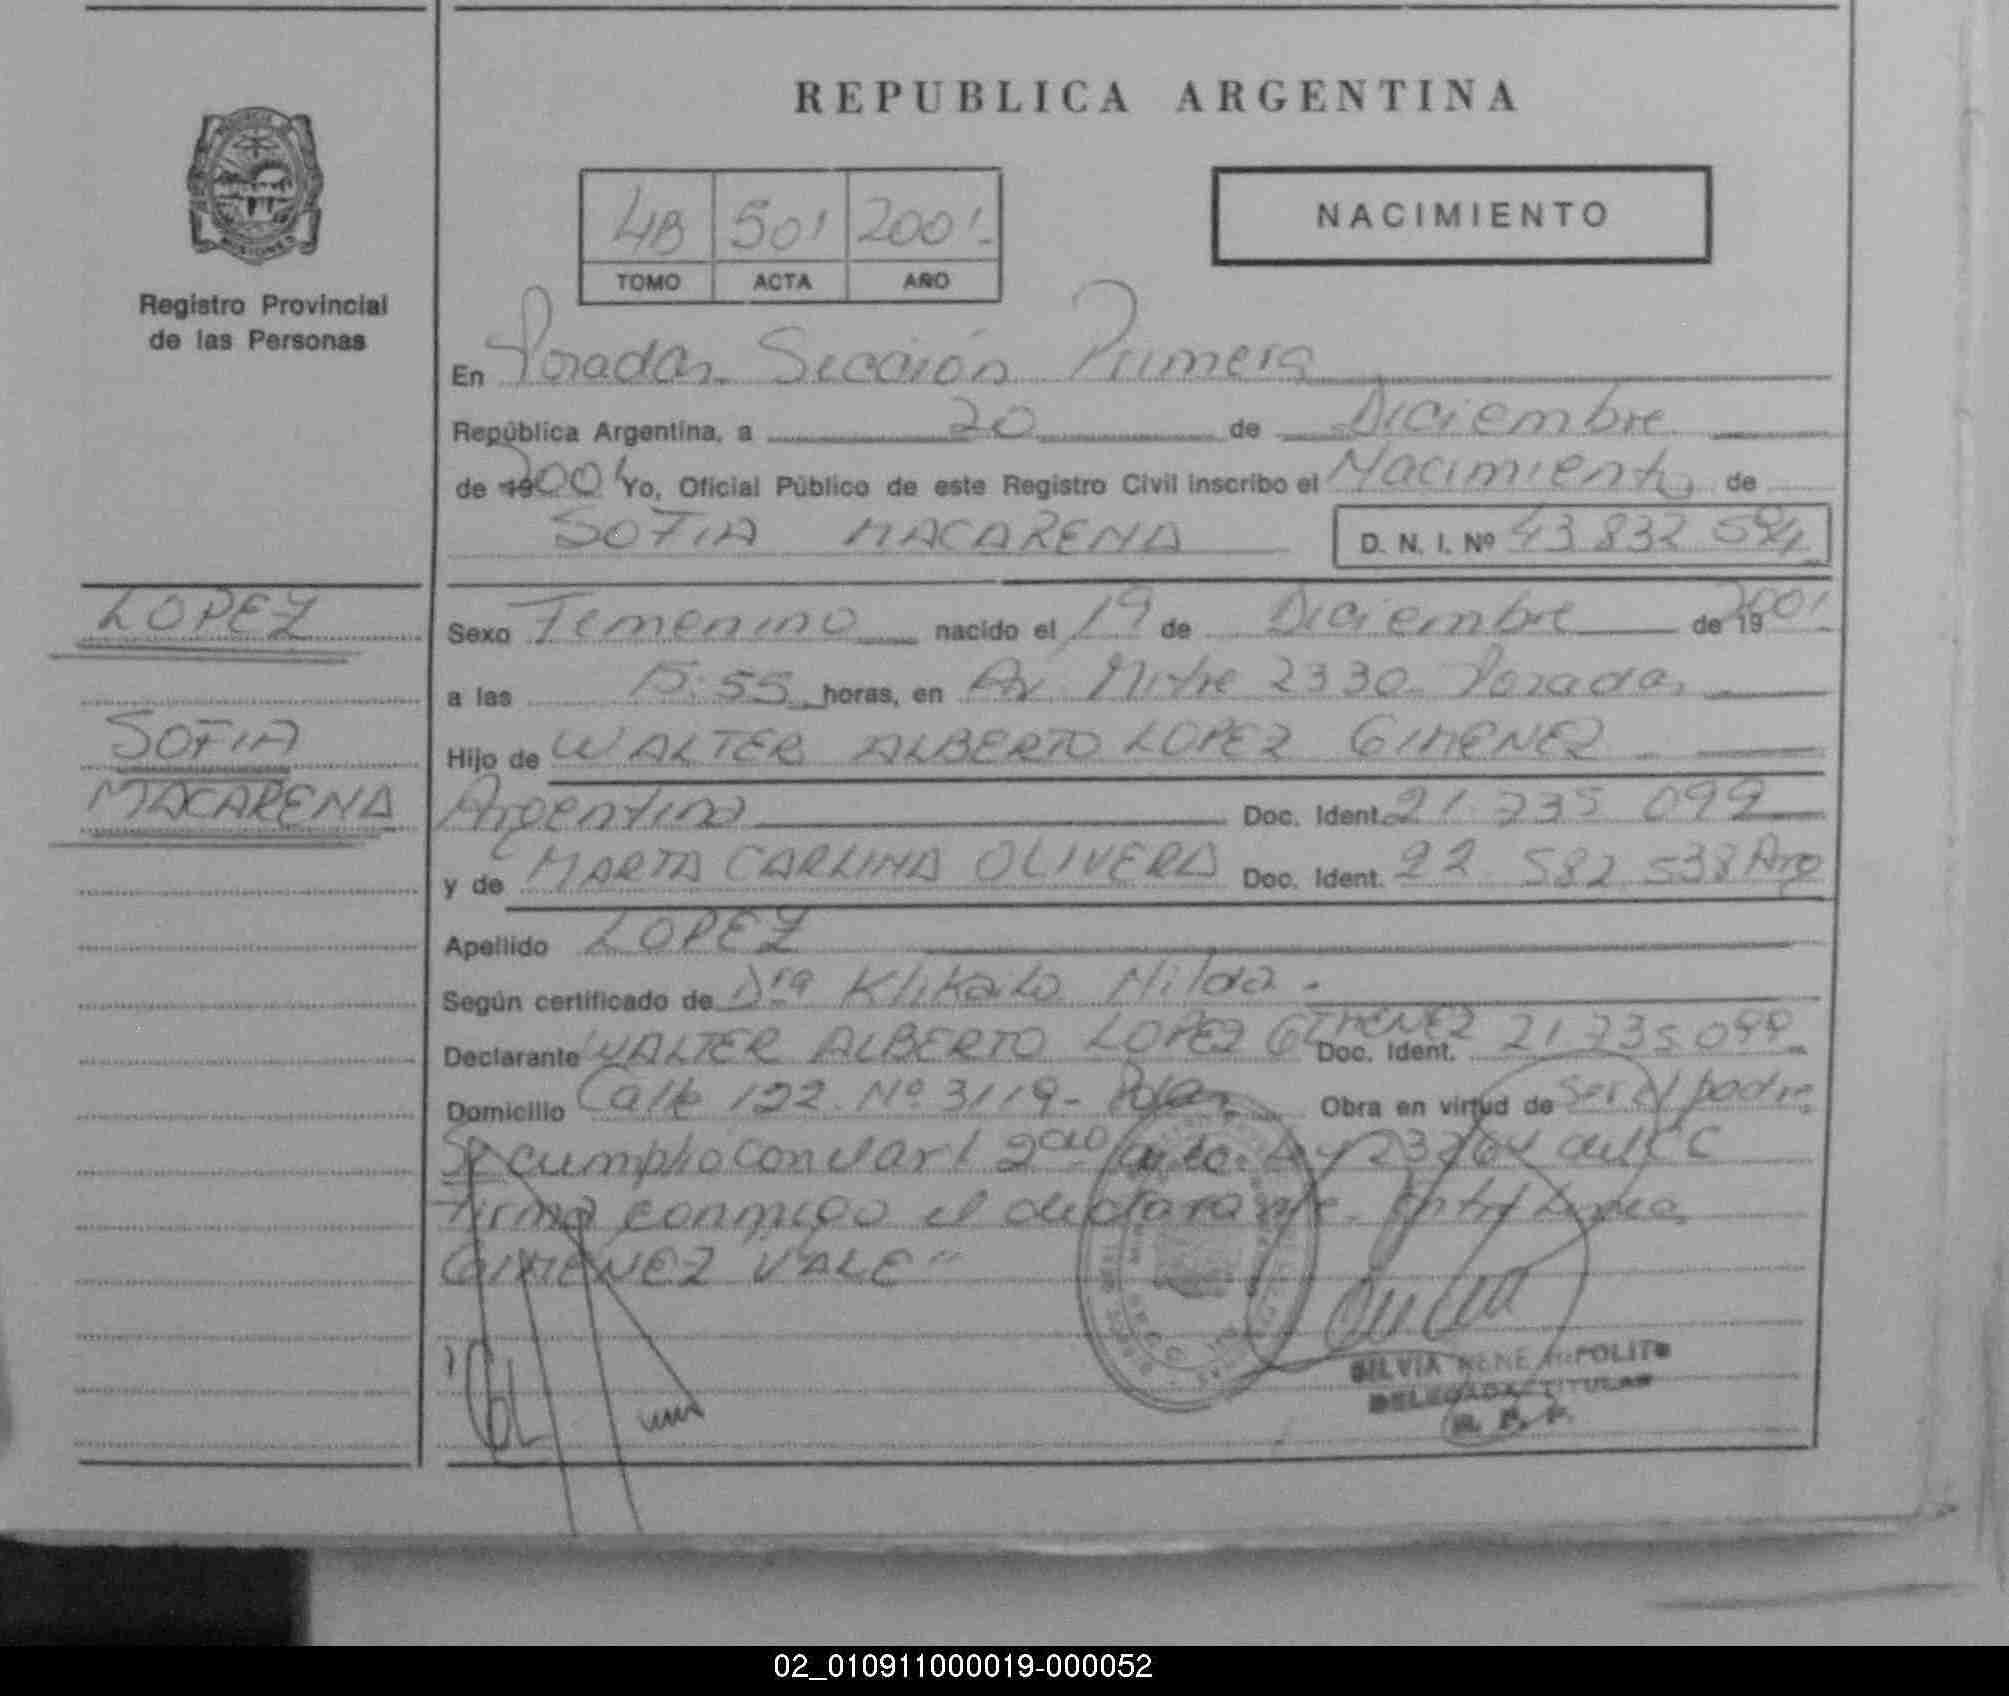 REPUBLICA ARGENTINA
4B 501 2001.-
TOMO ACTA AÑO
NACIMIENTO
MISIONES
Registro Provincial
de las Personas
En Posadas Sección Primera
República Argentina, a 20 de Diciembre
de 2001 Yo, Oficial Público de este Registro Civil inscribo el Nacimiento de
SOFIA MACARENA D. N. I. Nº 43 832 594
LOPEZ
SOFIA
MACARENA
Sexo Femenino nacido el 19 de Diciembre de 2001
a las 15:55 horas, en Av Mitre 2330 Posadas
Hijo de WALTER ALBERTO LOPEZ GIMENEZ
Argentina Doc. Ident. 21 735 099
y de MARTA CARLINA OLIVERA Doc. Ident. 22 582 538 Arg
Apellido LOPEZ
Según certificado de Dra Nilda .
Declarante WALTER ALBERTO LOPEZ GIMENEZ Doc. Ident. 21 735 099
Domicilio Calle 122 Nº 3119 - Pdas Obra en virtud de ser el padre
Se cumplio con el art 2do de la Ley 23264 del CC
Firma conmigo el declarante. Entre Lineas
GIMENEZ VALE"
SILVIA RENE HIPOLITO
DELEGADA TITULAR
R. P. P.
02_010911000019-000052